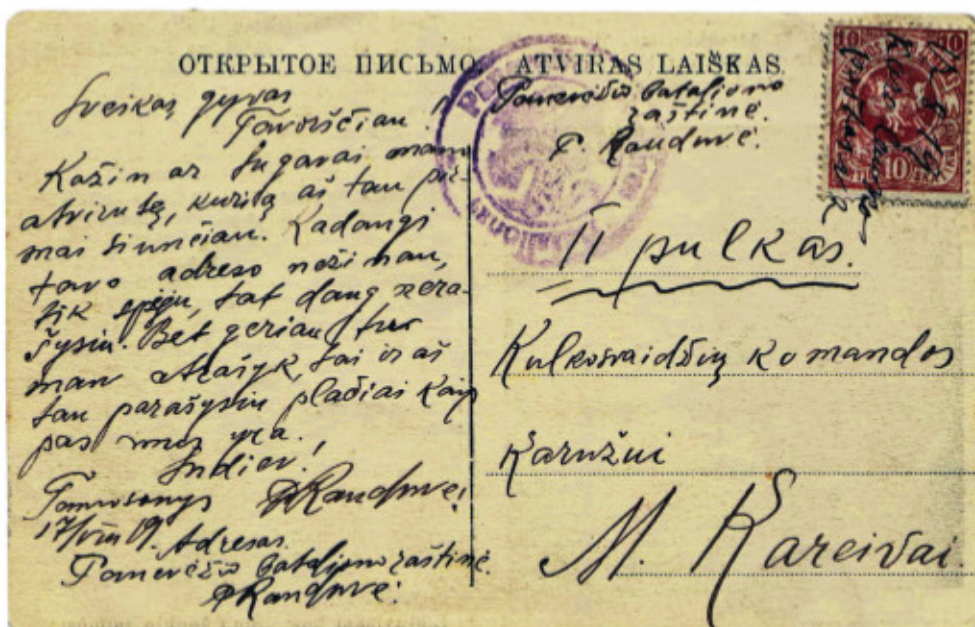 ОТКРЫТОЕ ПИСЬМО. ATVIRAS LAIŠKAS.
Sveikas gyvas
Tavorščiau!
Kažin ar sugavai mano
atvirutę, kurią aš tau pir-
mai siunčiau. Kadangi
tavo adreso nežinau,
tik spėju, tat daug nera-
šysiu. Bet geriau tu
man atrašyk, tai ir aš
tau parašysiu plačiai kaip
pas mus yra.
Sudiev!
PRanduvė!
17/VIII 19.
Adresas
Panevėžio batalijono raštinė.
PRanduvė.
Panevėžio bataliono
raštinė.
P. Randuvė.
10 10
10
II pulkas.
Kulkosvaidžių komandos
Karužui
M. Kareivai